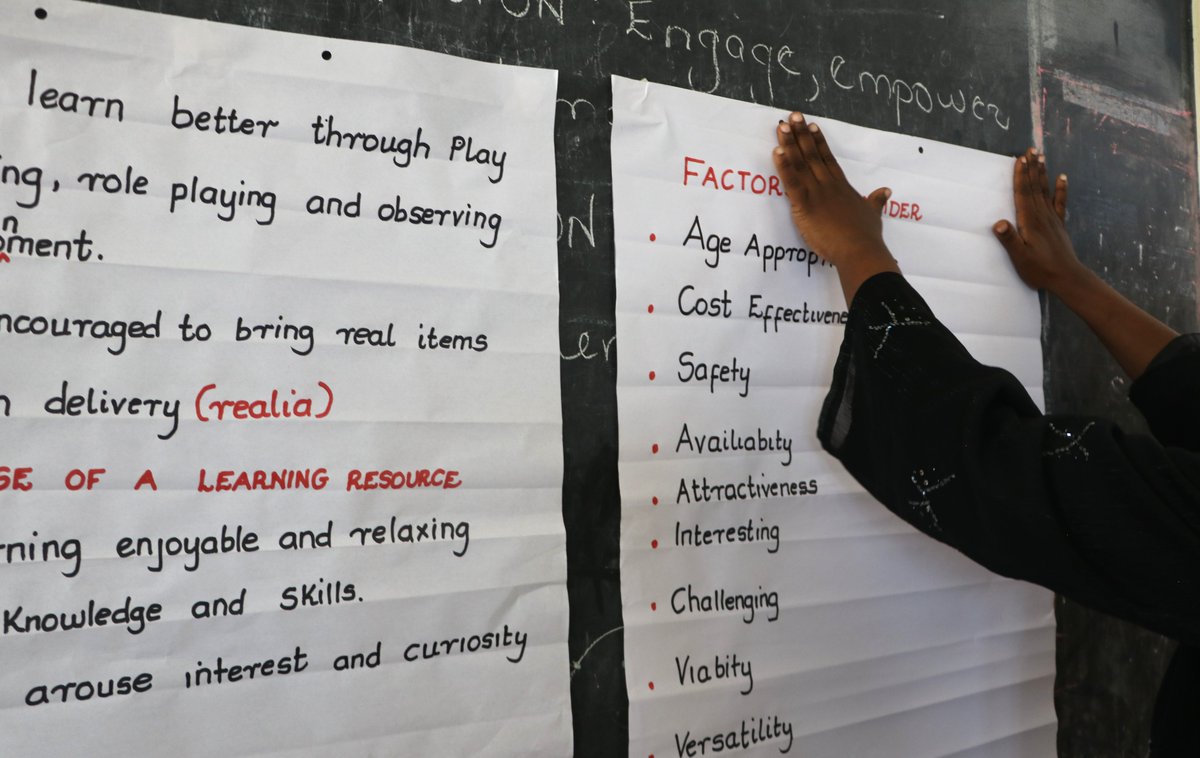 Engage, empower
learn better through Play
ing, role playing and observing
n
ment.
ncouraged to bring real items
delivery (realia)
SE OF A LEARNING RESOURCE
rning enjoyable and relaxing
Knowledge and skills.
arouse interest and curiosity
FACTOR IDER
• Age Approp
• Cost Effectivene
• Safety
• Availiabity
• Attractiveness
• Interesting
• Challenging
• Viabity
• Versatility